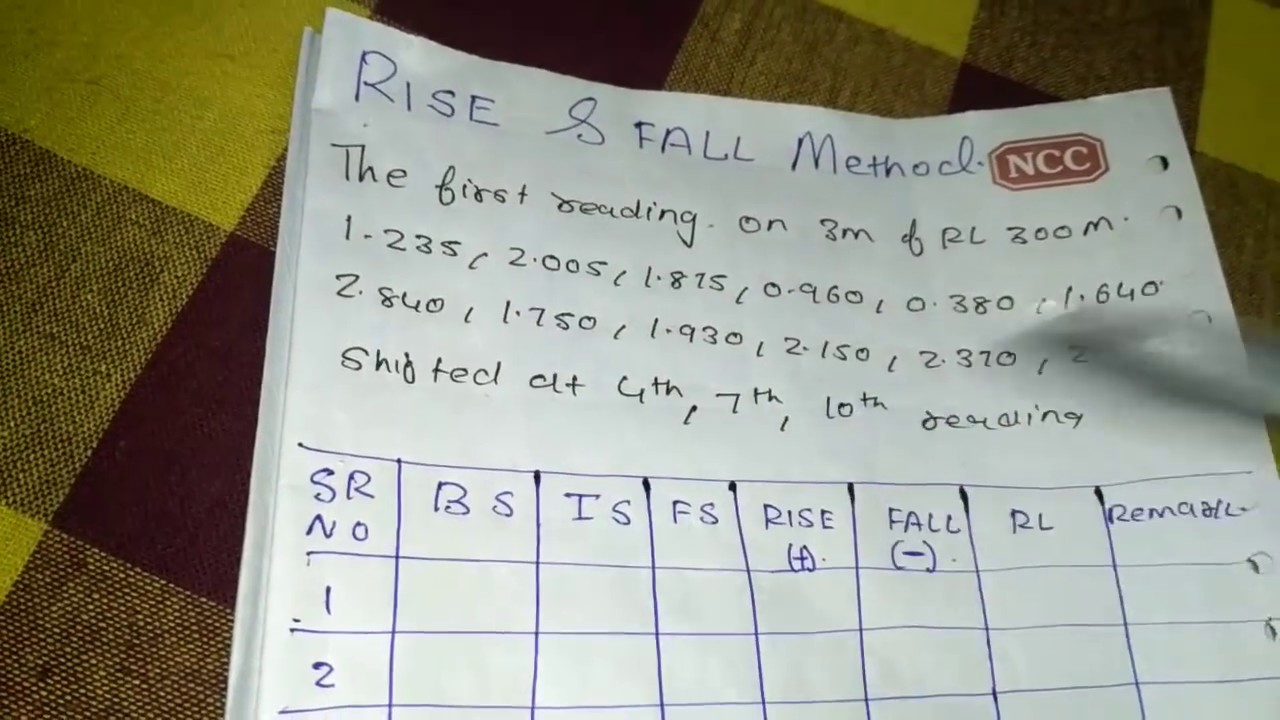 RISE & FALL Method.
NCC
The first reading. on 3m of RL 300m.
1.235, 2.005, 1.875, 0.960, 0.380, 1.640
2.840, 1.750, 1.930, 2.150, 2.370, 2
Shifted at 4th, 7th, 10th reading
SR NO BS IS FS RISE (+). FALL (-). RL Remark.
1
2